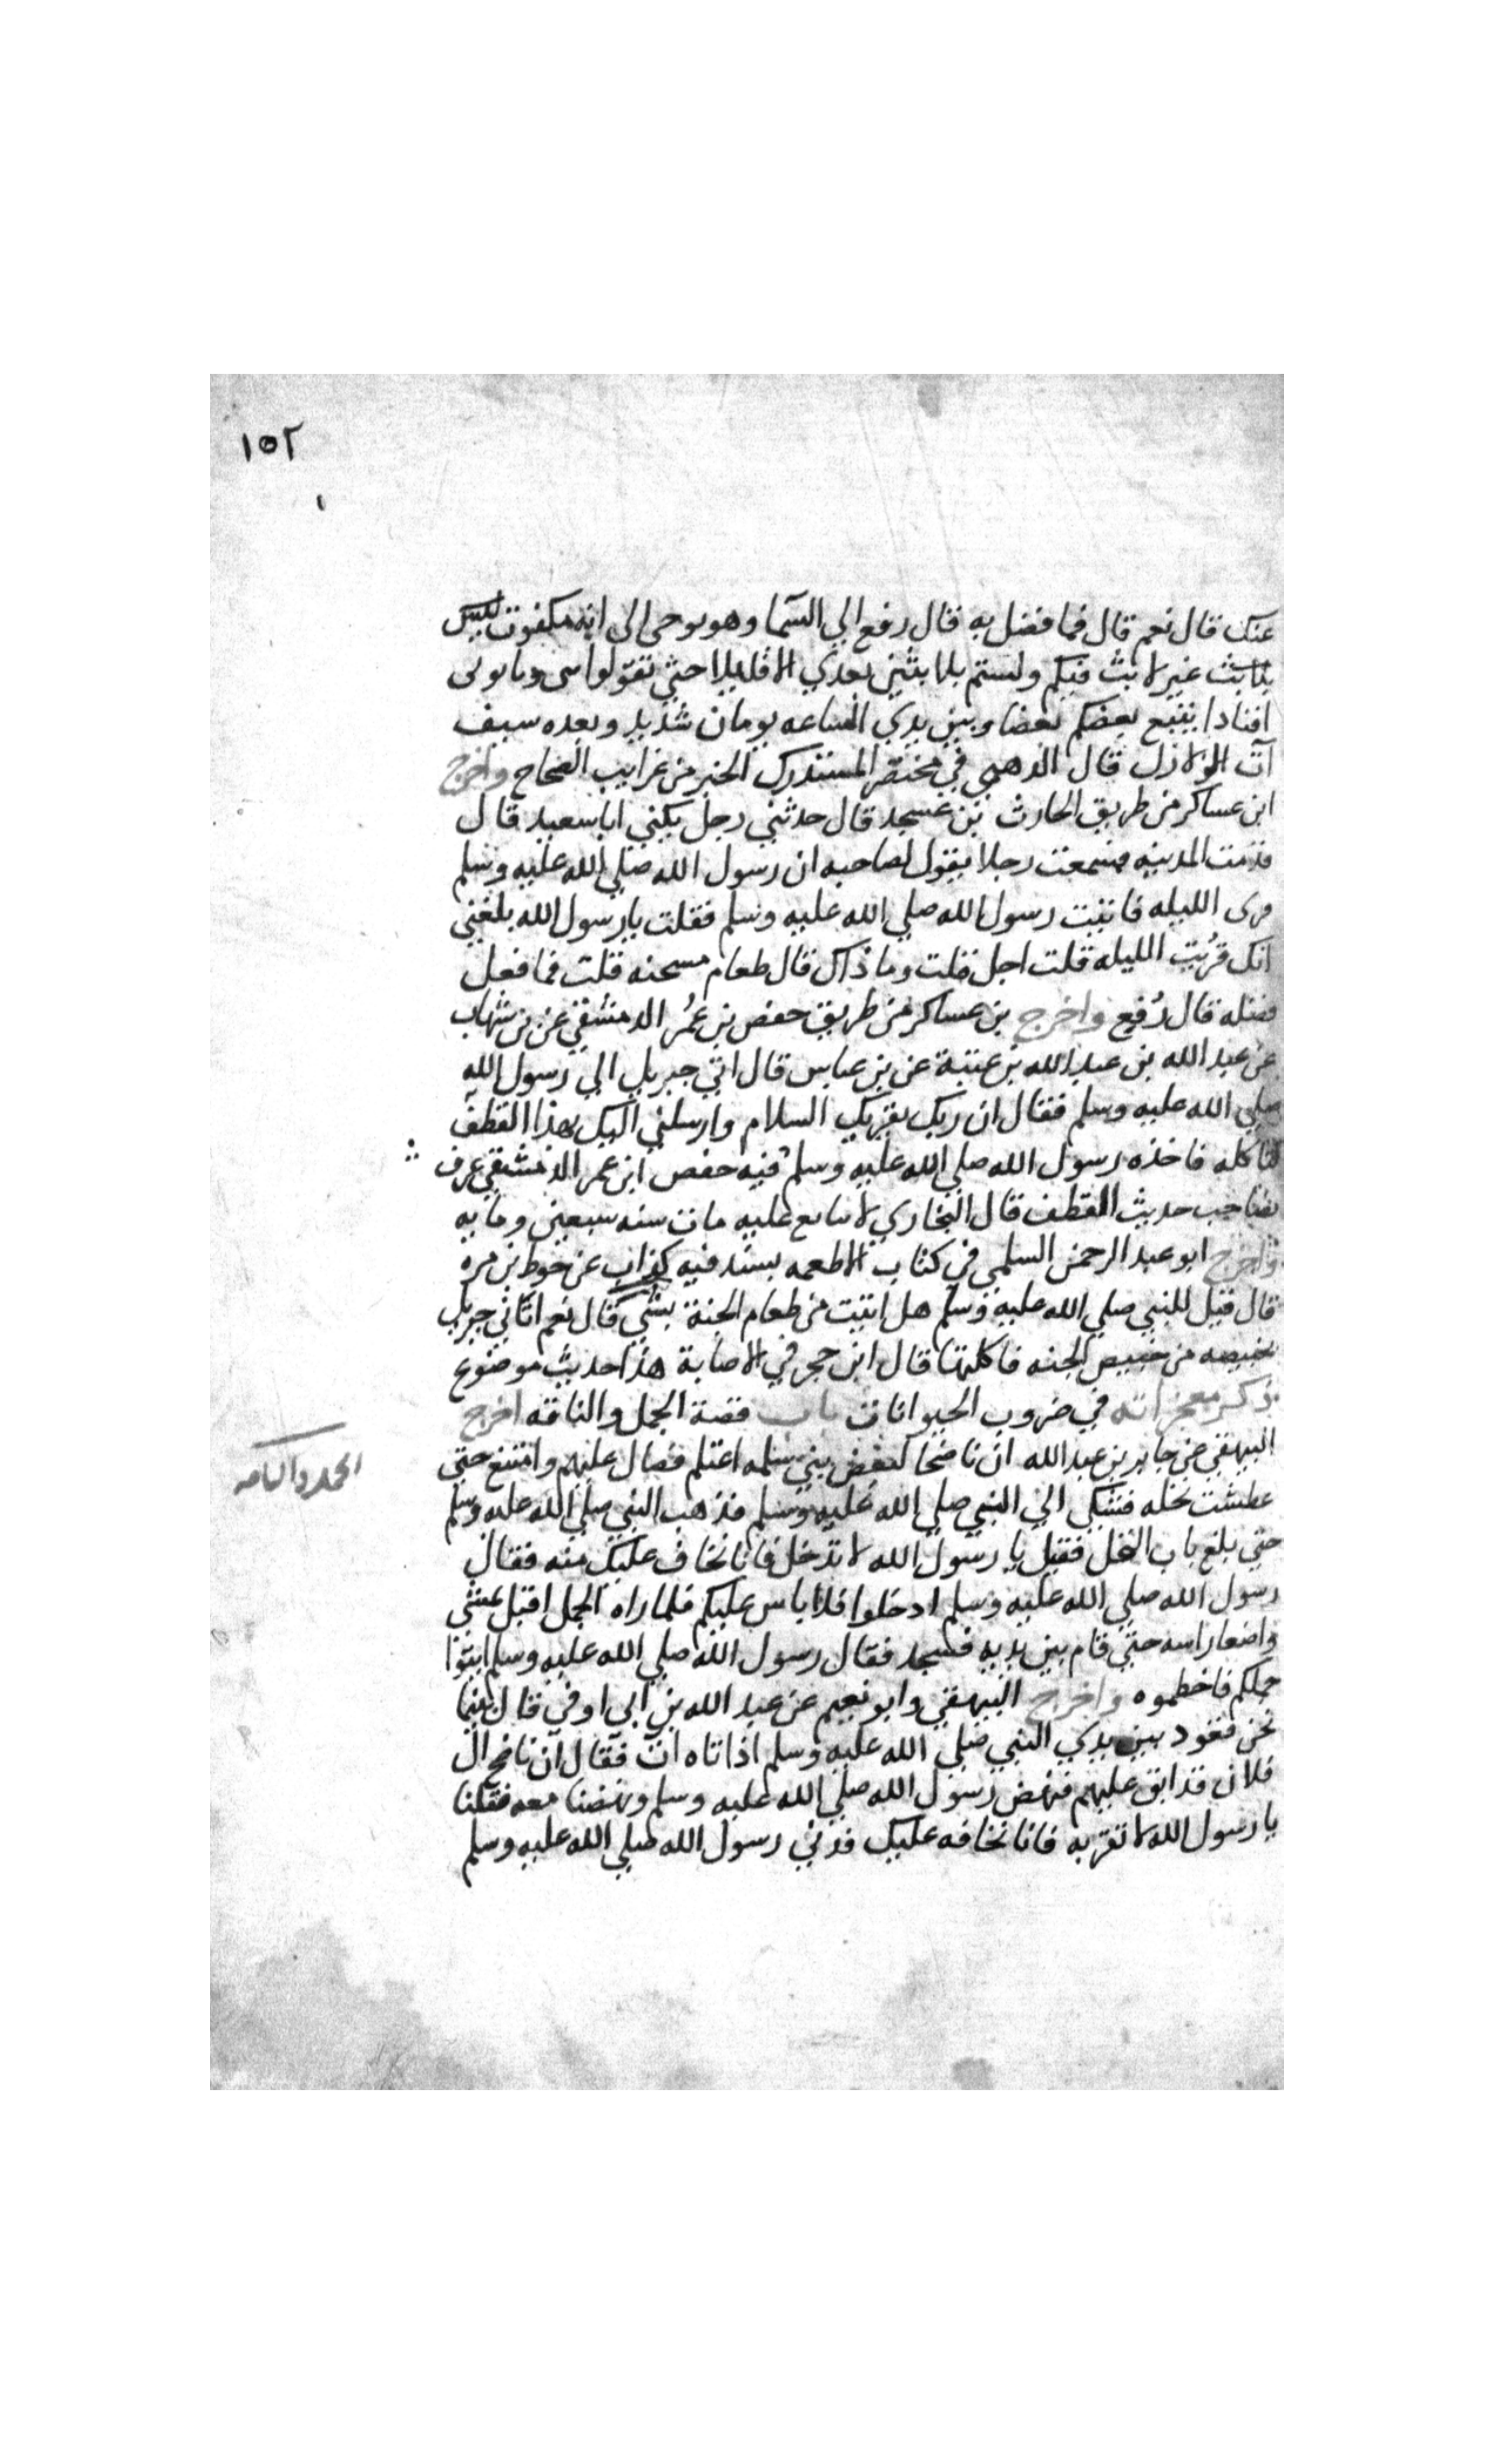 ١٥٢
عنك قال نعم قال فما فضل به قال رفع الي السما وهو يوحى الى انه مكفوت ليس
بلابث غير لابث فيكم ولستم بلابثين بعدي الا قليلا حتي تقولوا متى وياتونى
افنادا يتبع بعضكم بعضا وبين يدي الساعه يومان شديد وبعده سبف
آت الولازل قال الدهبي في مختصر المستدرك الخبر من غرايب الصحاح واخرج
ابن عساكر من طريق الحارث بن عسجد قال حدثني رجل يكني ابا سعيد قال
قدمت المدينه فسمعت رجلا يقول لصاحبه ان رسول الله صلي الله عليه وسلم
قرى الليله فاتيت رسول الله صلي الله عليه وسلم فقلت يا رسول الله بلغني
انك قُريت الليله قلت اجل قلت وما ذاك قال طعام مسخنه قلت فما فعل
فضله قال رُفع واخرج بن عساكر من طريق حفص بن عُمر الدمشقي عن بن شهاب
عن عبد الله بن عبد الله بن عتبة عن بن عباس قال اتي جبريل الي رسول الله
صلي الله عليه وسلم فقال ان ربك يقريك السلام وارسلني اليك بهذا القطف
لتاكله فاخذه رسول الله صلي الله عليه وسلم فيه حفص ابن عمر الدمشقي عرف
بصاحب حديث القطف قال البخاري لا يتابع عليه مات سنه سبعين ومايه
واخرج ابو عبد الرحمن السلمي في كتاب الاطعمه بسند فيه كذاب عن حوط بن مره
قال قيل للنبي صلي الله عليه وسلم هل اتيت من طعام الجنة بشي قال نعم اتاني جبريل
بخبيصه من خبيص الجنه فاكلتها قال ابن حجر في الاصابة هذا حديث موضوع
ذكر معجزاته في ضروب الحيوانات باب قصة الجمل والناقه اخرج
البيهقي عن جابر بن عبد الله ان ناضحا لبعض بني سلمه اغتلم فصال عليهم وامتنع حتي
عطشت نخله فشكي الي النبي صلي الله عليه وسلم فذهب النبي صلي الله عليه وسلم
حتي بلغ باب النخل فقيل يا رسول الله لا تدخل فانا نخاف عليك منه فقال
رسول الله صلي الله عليه وسلم ادخلوا فلا باس عليكم فلما راه الجمل اقبل يمشي
واضعا راسه حتي قام بين يديه فسجد فقال رسول الله صلي الله عليه وسلم ايتوا
جملكم فاخطموه واخرج البيهقي وابو نعيم عن عبد الله بن ابى اوفي قال بينما
نحن قعود بين يدي النبي صلي الله عليه وسلم اذ اتاه آت فقال ان ناضح ال
فلان قد ابق عليهم فنهض رسول الله صلي الله عليه وسلم ونهضنا معه فقلنا
يا رسول الله لا تقربه فانا نخافه عليك فدني رسول الله صلي الله عليه وسلم